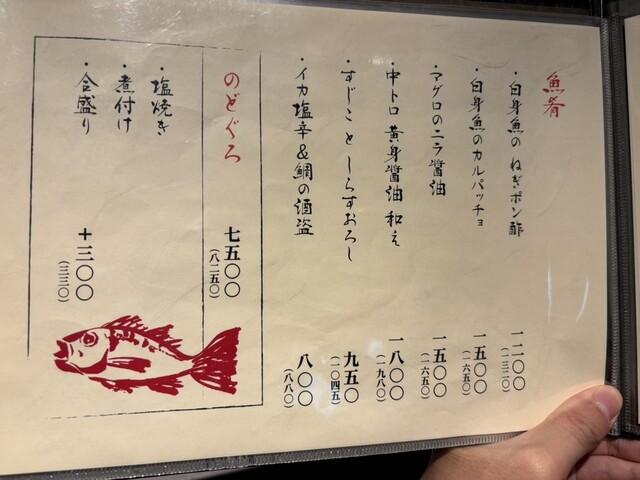 魚肴
・白身魚のねぎポン酢 一二〇〇
(一三二〇)
・白身魚のカルパッチョ 一五〇〇
(一六五〇)
・マグロのニラ醤油 一五〇〇
(一六五〇)
・中トロ黄身醤油和え 一八〇〇
(一九八〇)
・すじことしらすおろし 九五〇
(一〇四五)
・イカ塩辛&鯛の酒盗 八〇〇
(八八〇)
のどぐろ 七五〇〇
(八二五〇)
・塩焼き
・煮付け
・合盛り 十三〇〇
(三三〇)